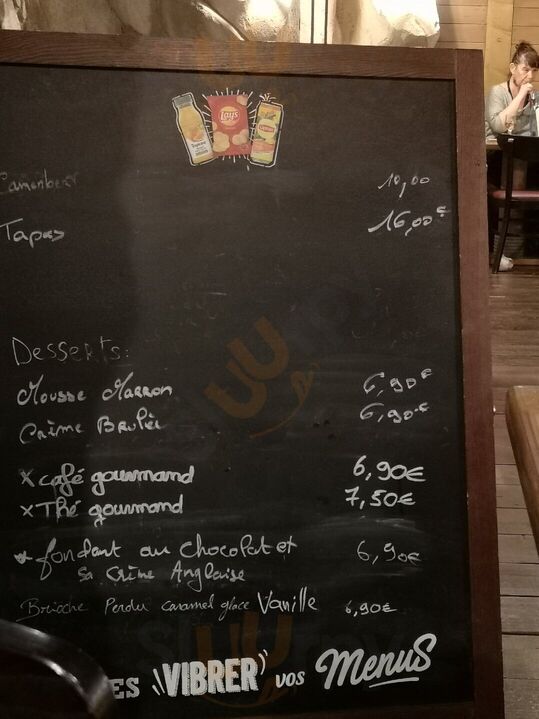 Lay's
Camembert 10,00
Tapas 16,00€
Desserts:
Mousse Marron 6,90€
Crème Brulée 6,90€
x café gourmand 6,90€
x Thé gourmand 7,50€
x fondant au chocolat et 6,90€
sa Crème Anglaise
Brioche Perdu caramel glace Vanille 6,90€
ES VIBRER VOS MENUS